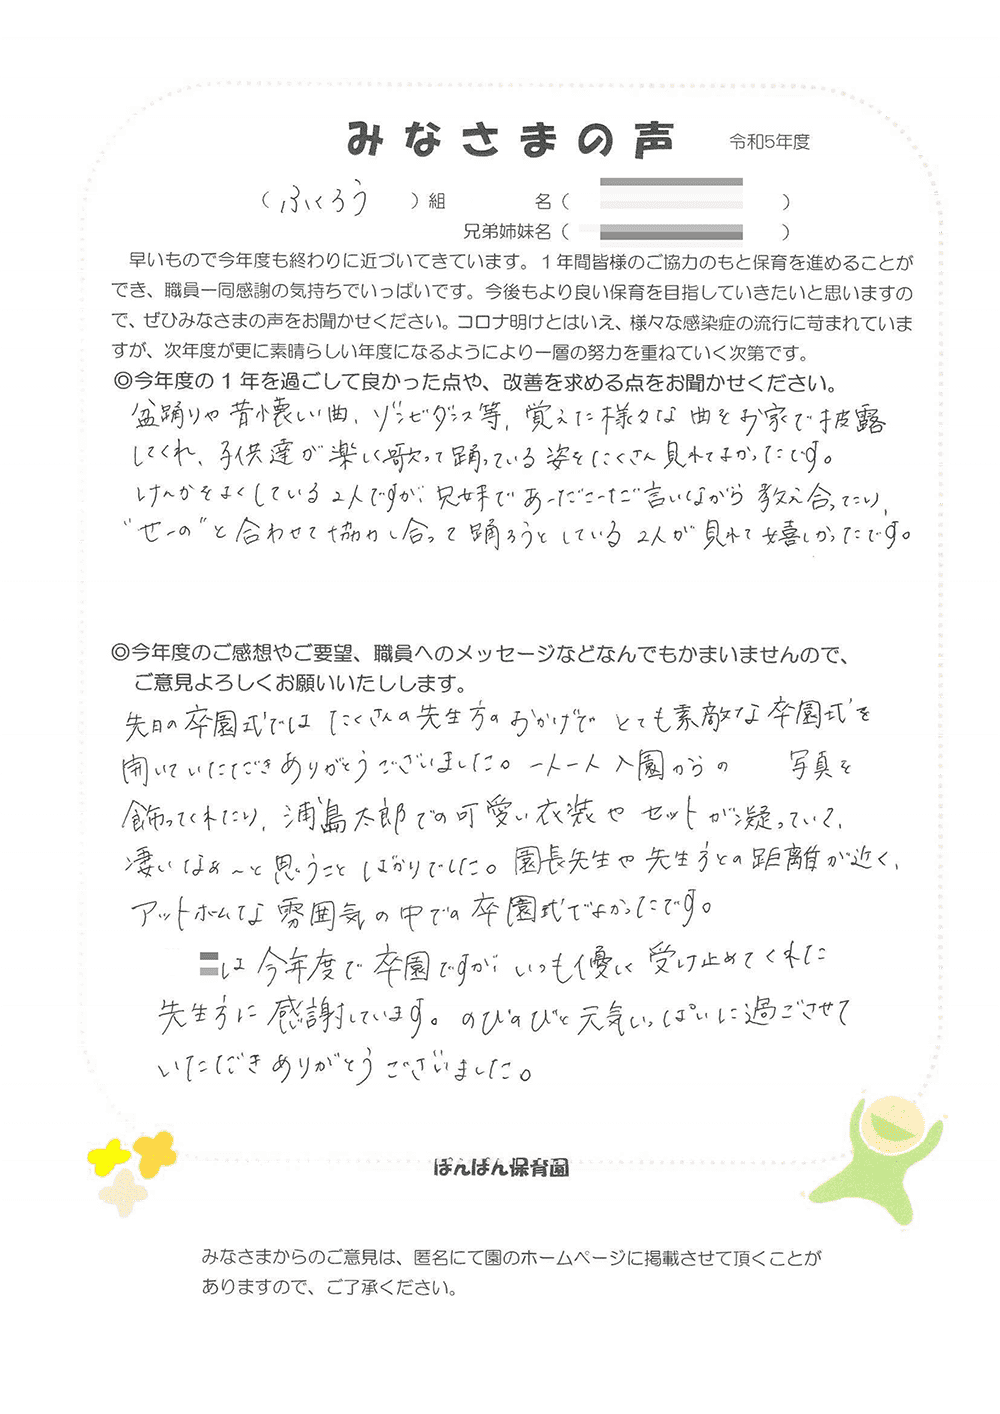 みなさまの声 令和5年度
( ふくろう )組 名( )
兄弟姉妹名( )
早いもので今年度も終わりに近づいてきています。1年間皆様のご協力のもと保育を進めることが
でき、職員一同感謝の気持ちでいっぱいです。今後もより良い保育を目指していきたいと思いますの
で、ぜひみなさまの声をお聞かせください。コロナ明けとはいえ、様々な感染症の流行に苛まれていま
すが、次年度が更に素晴らしい年度になるようにより一層の努力を重ねていく次第です。
◎今年度の1年を過ごして良かった点や、改善を求める点をお聞かせください。
盆踊りや昔懐しい曲、ゾンビダンス等、覚えた様々な曲をお家で披露
してくれ、子供達が楽しく歌って踊っている姿をたくさん見れてよかったです。
けんかをよくしている2人ですが、兄妹であーだこーだ言いながら教え合ってたり、
"せーの"と合わせて協力し合って踊ろうとしている2人が見れて嬉しかったです。
◎今年度のご感想やご要望、職員へのメッセージなどなんでもかまいませんので、
ご意見よろしくお願いいたしします。
先日の卒園式ではたくさんの先生方のおかげでとても素敵な卒園式を
開いていただきありがとうございました。一人一人入園からの 写真を
飾ってくれたり、浦島太郎での可愛い衣装やセットが凝っていて、
凄いなぁ〜と思うことばかりでした。園長先生や先生方との距離が近く、
アットホームな雰囲気の中での卒園式でよかったです。
は今年度で卒園ですが、いつも優しく受け止めてくれた
先生方に感謝しています。のびのびと元気いっぱいに過ごさせて
いただきありがとうございました。
ぽんぽん保育園
みなさまからのご意見は、匿名にて園のホームページに掲載させて頂くことが
ありますので、ご了承ください。